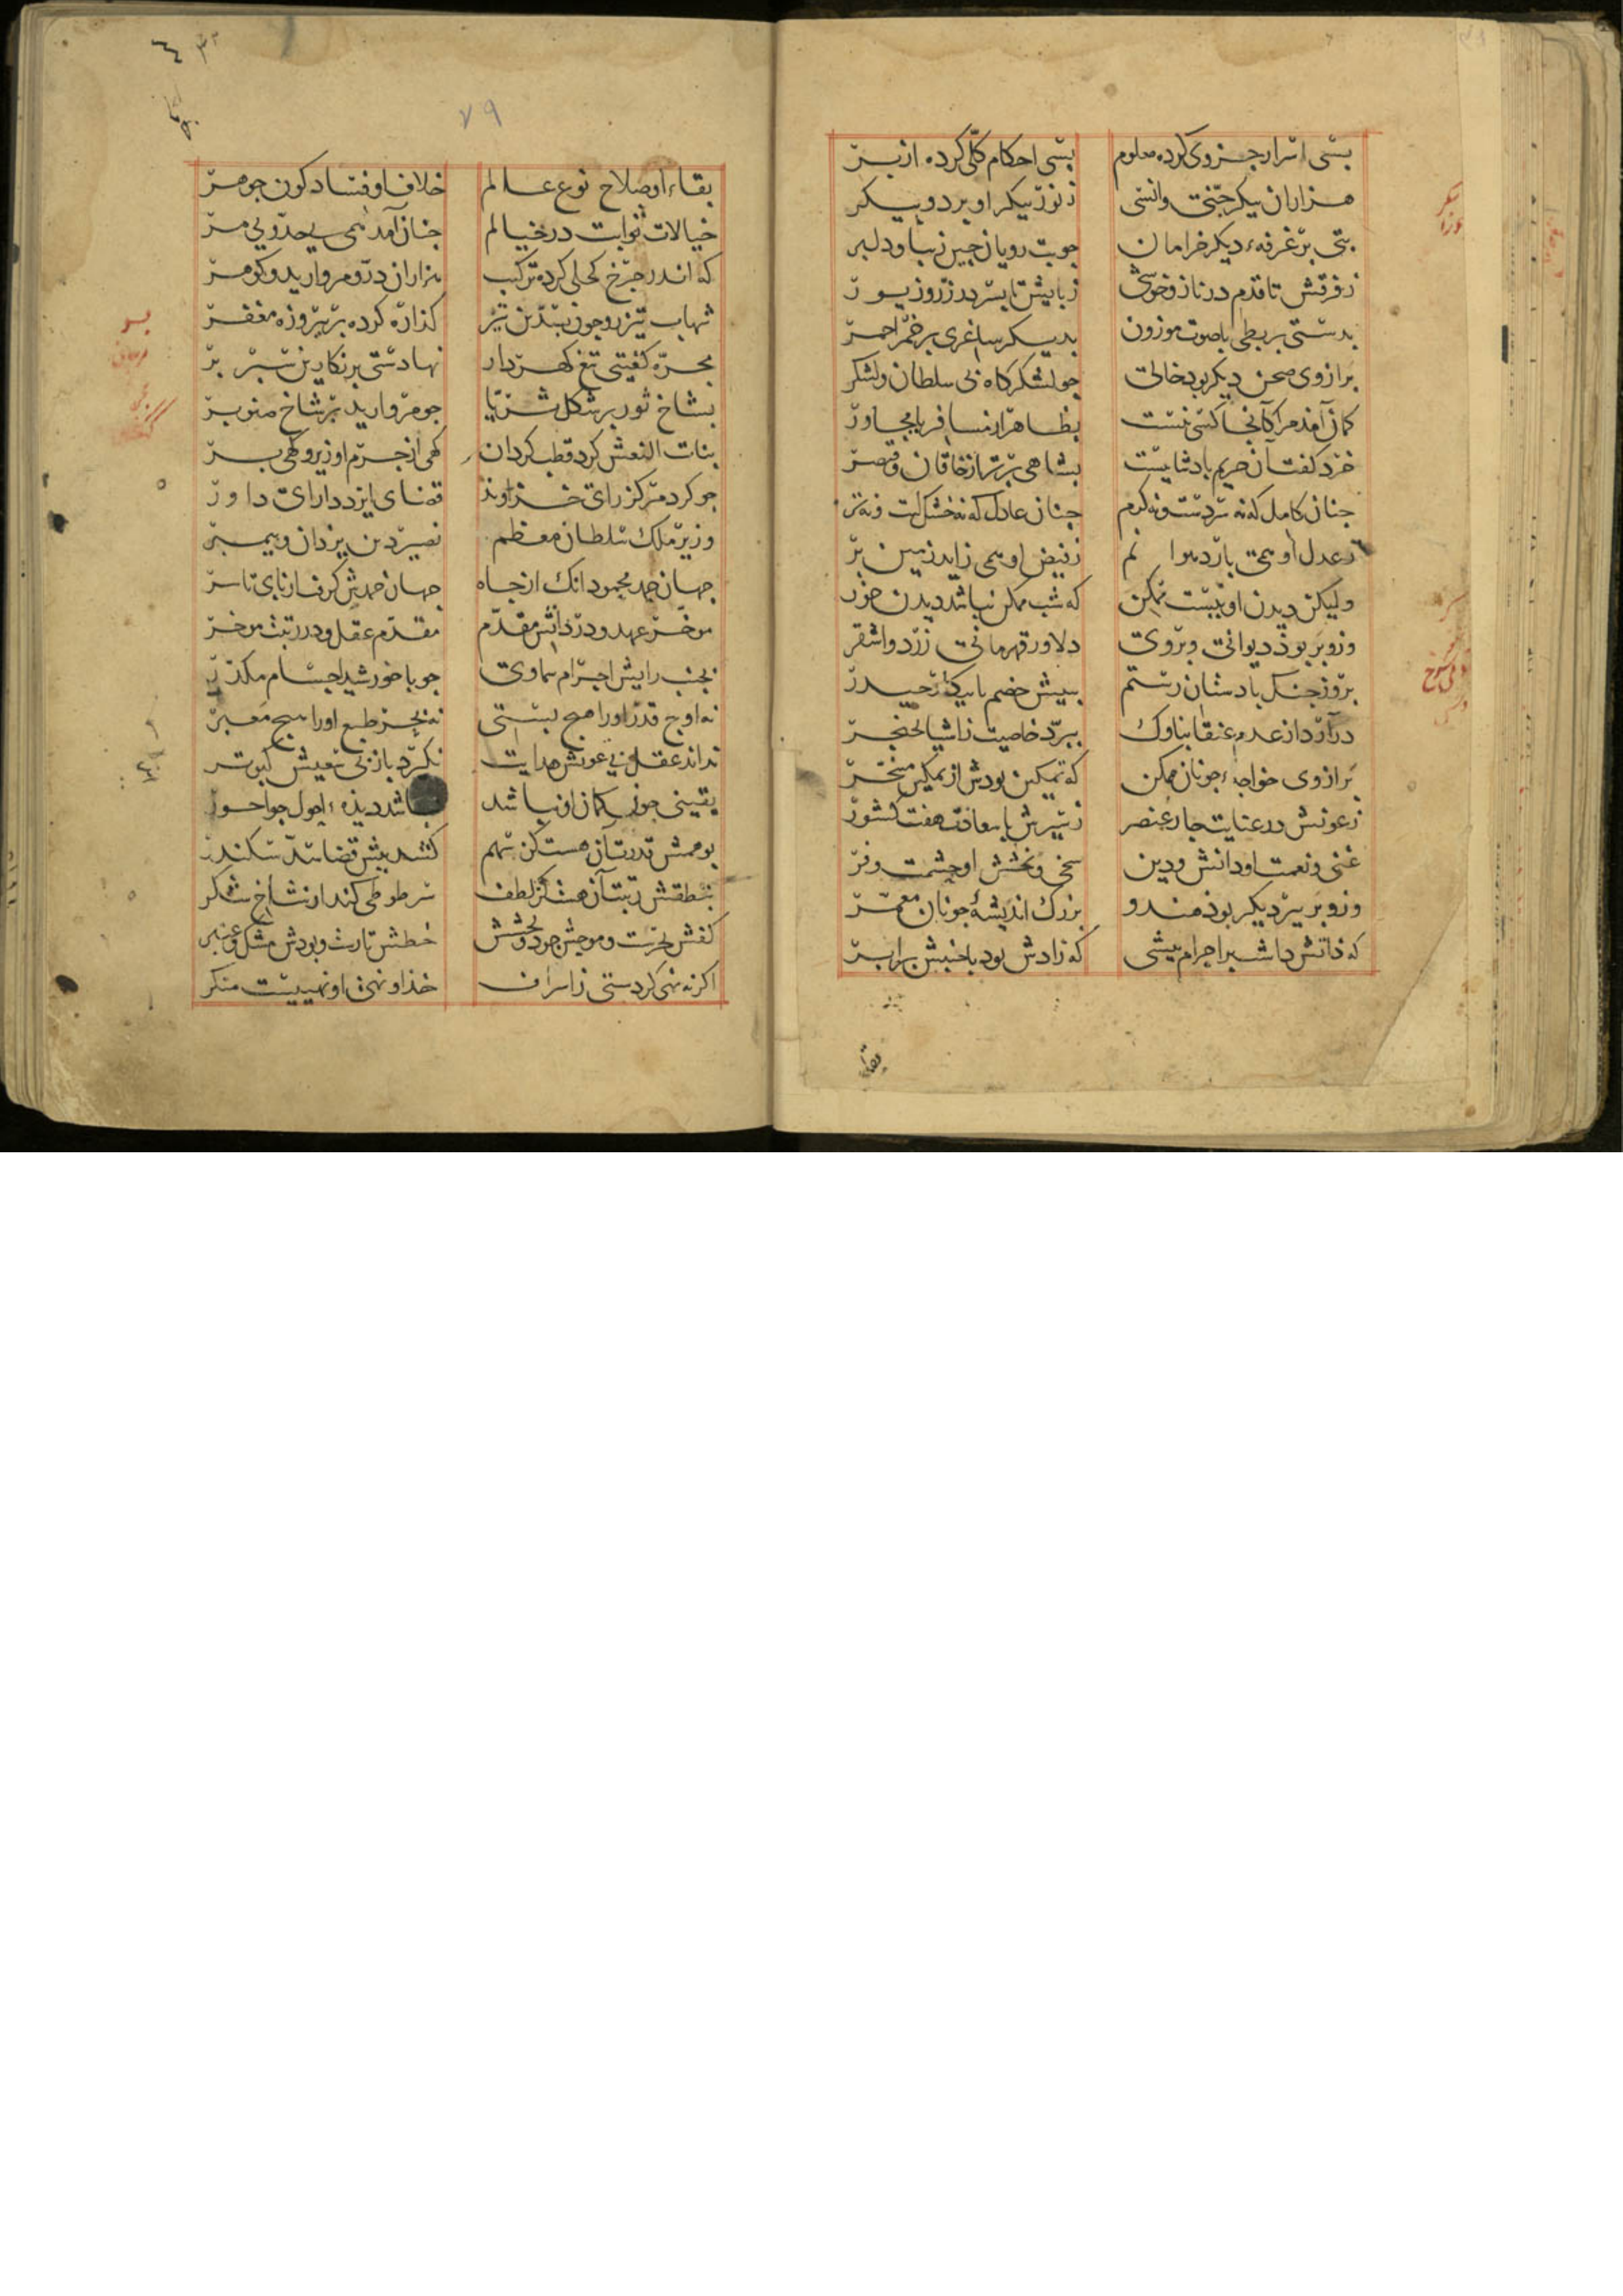 بسی اسرار جزوی کرده معلوم بسی احکام کلی کرده از بر
هزاران پیکر جنی و انسی ز نور پیکر او برد و پیکر
بتی بر غرفهٔ دیکر خرامان جو بت رویان جین زیبا و دلبر
ز فرقش تا قدم در ناز و خوشی ز بایش تا بسر در زر و زیور
بدستی بربطی با صوت موزون بدیکر ساغری بر خمر احمر
بر از وی صحن دیکر بود خالی جو لشکرکاه بی سلطان و لشکر
کمان آمذ مرا کانجا کسی نیست بظاهر از مسافر یا مجاور
خرد کفت آن حریم بادشاییست بشاهی برتر از خاقان و قیصر
جنان کامل که نه سردست و نه کرم جنان عادل که نه خشک است و نه تر
ز عدل او همی بارد هوا نم ز فیض او همی زاید زمین بر
ولیکن دیدن او نیست ممکن که شب ممکن نباشد دیدن خور
وزو بر بوذ دیوانی و بر وی دلاور قهرمانی زرد و اشقر
بروز جنک با دستان رستم ببیش خصم با بیکار حیدر
درآرد از عدم عنقا بناوک ببرد خاصیت ز اشیا بخنجر
بر از وی خواجهٔ جونان ممکن که تمکین بودش از تمکین مسخر
ز عونش در عنایت جار عنصر ز سیرش با سعادت هفت کشور
غنی و نعمت او دانش و دین سخی و بخشش او حشمت و فر
وزو بر بیر دیکر بوذ هندو بزرک اندیشهٔ جونان معمر
که ذاتش داشت بر اجرام بیشی که زادش بود با جنبش برابر
بقا
۷۹
بقاء او صلاح نوع عالم خلاف او فساد کون جوهر
خیالات ثوابت در خیالم جنان آمد همی بیحد و بی مر
که اندر جرخ کحلی کرده ترکیب هزاران در و مروارید و کوهر
شهاب تیزرو جون بسدین تیر کذاره کرده بر بیروزه مغفر
مجره کفتیی تیغ کهردار نهادستی بر نکارین سبر بر
بشاخ ثور بر شکل ثریا جو مروارید بر شاخ صنوبر
بنات النعش کرد قطب کردان کهی از جرم او زیر و کهی بر
جو کرد مرکز رای خذاوند قضای ایزد دارای داور
وزیر ملک سلطان معظم نصیر دین یزدان و بیمبر
جهان حمد محمود انک از جاه جهان حمدش کرفت از بای تا سر
موخر عهد و در دانش مقدم مقدم عقل و در رتبت موخر
بجنب رایش اجرام سماوی جو با خورشید اجسام مکدر
نه اوج قدر او را هیج بستی نه بحر طبع او را هیج معبر
نداند عقل بی عونش هدایت نکرد باز بی سعیش کبوتر
یقینی جون کمان او نباشد نباشد دیذهٔ احول جو احور
بوهمش قدرت آن هست کز سهم کشد بیش قضا سد سکندر
بنطقش رتبت آن هست کز لطف سر طوطی کند از شاخ شکر
کفش بحرست و موجش جود و بخشش خطش تارست و بودش مشک و عنبر
اکر نه نهی کردستی ز اسراف خذا و نهی او نهییست منکر